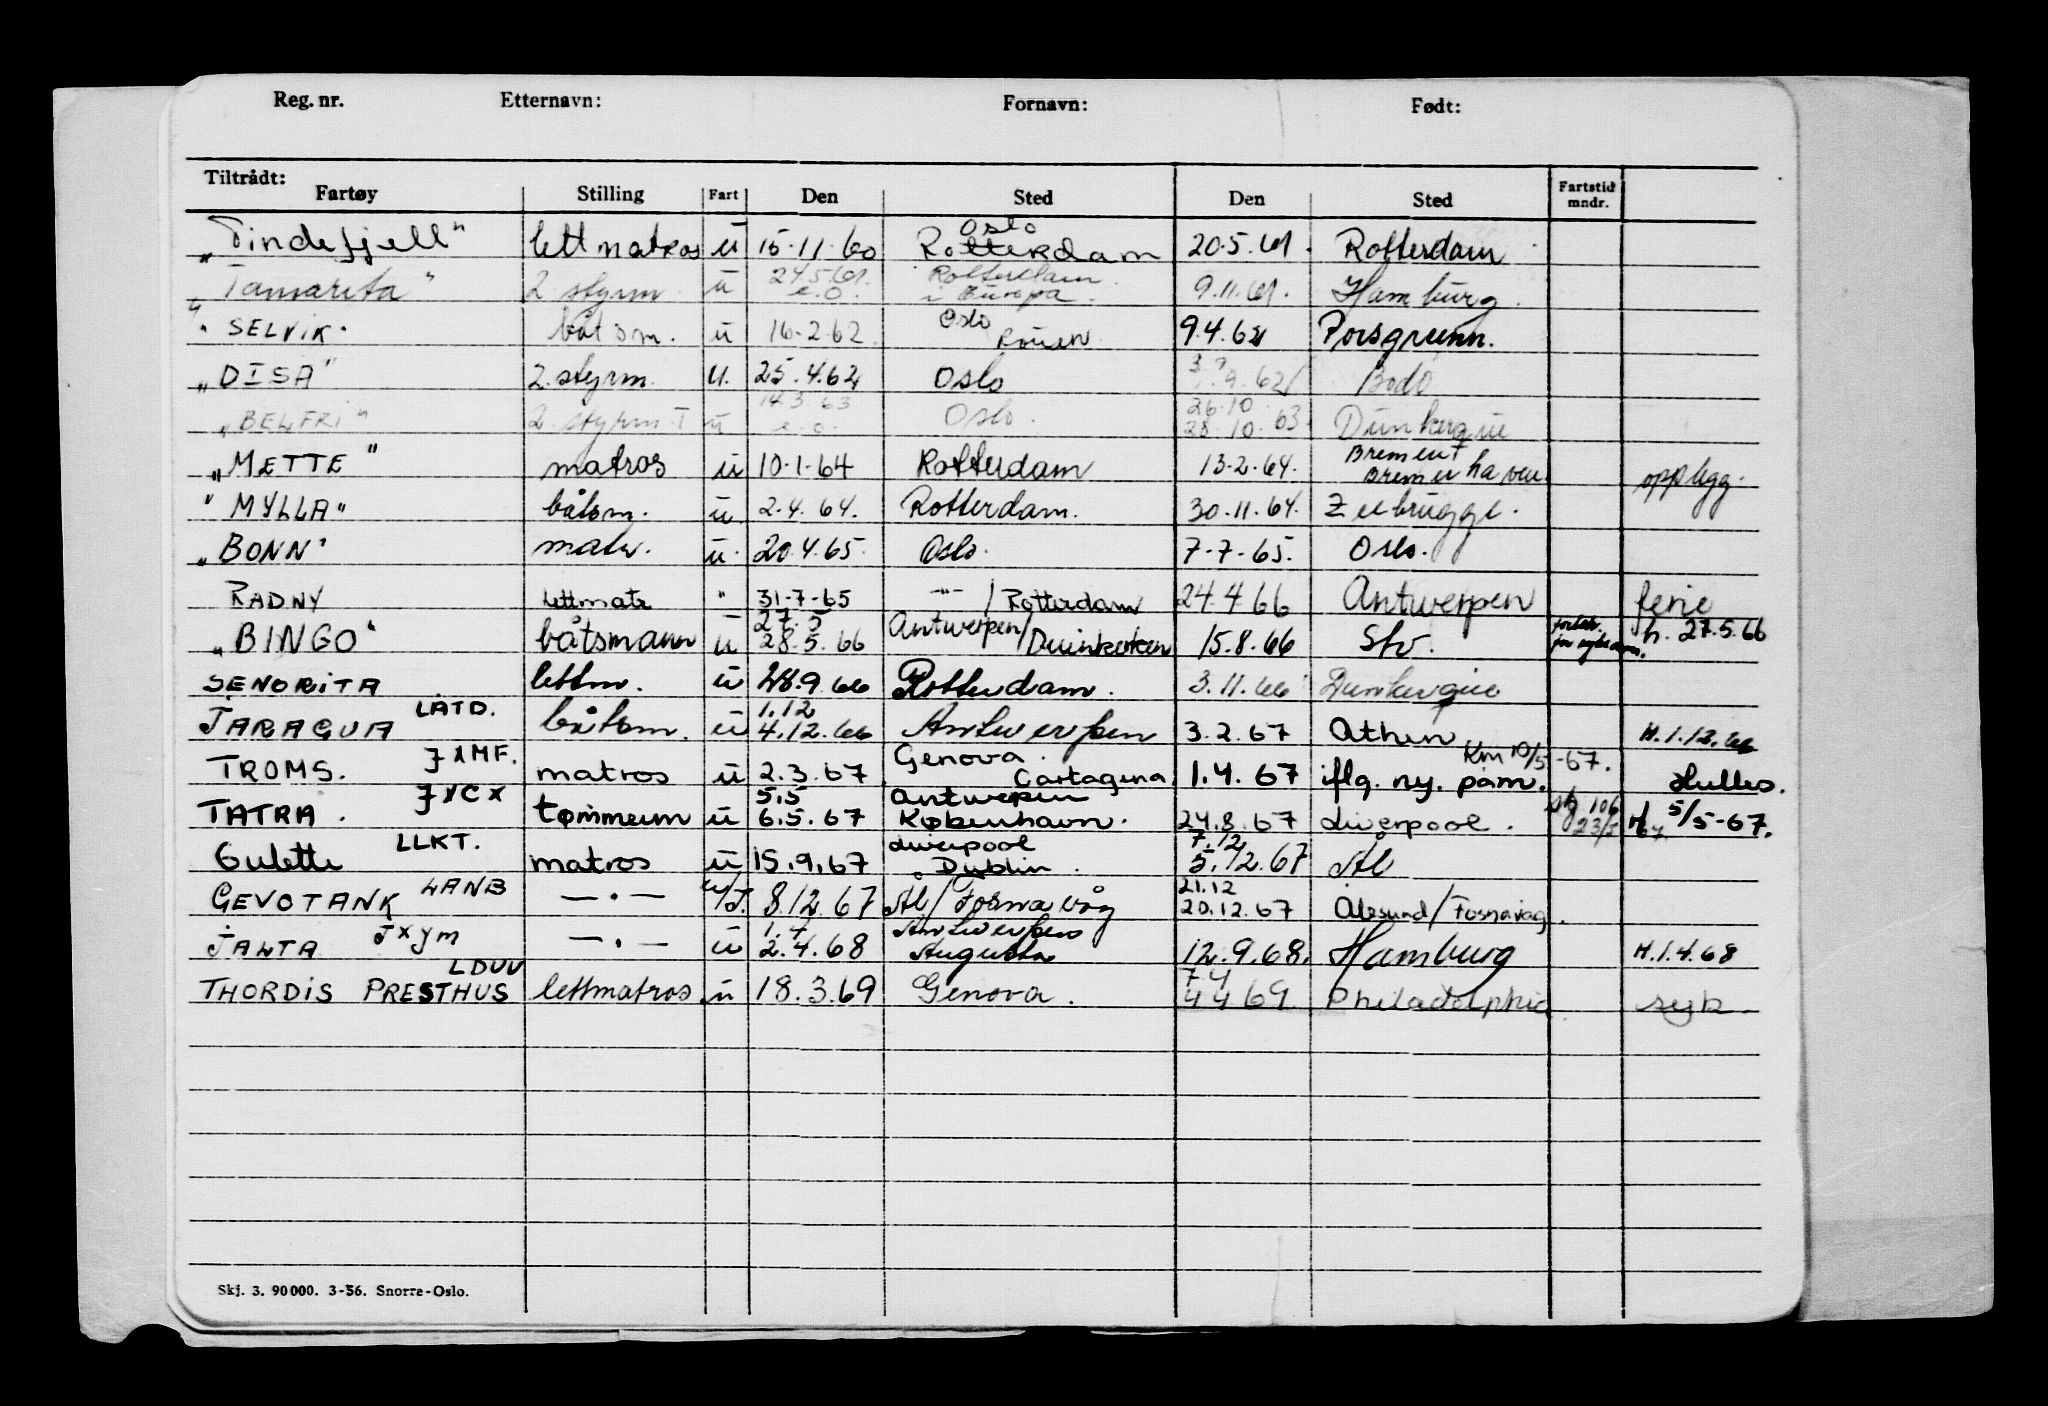 Reg. nr. Etternavn: Fornavn: Født:
Tiltrådt:
Fartøy Stilling Fart Den Sted Den Sted Fartstid mndr.
Oslo
"Tindefjell" lettmatros ü 15.11.60 Rotterdam 20.5.61. Rotterdam
24.5.61. Rotterdam.
"Tamarita" 2. styrm. ü e.o. i Europa. 9.11.61. Hamburg.
Oslo
"SELVIK" båtsm. ü 16-2-62. Rouen 9.4.62 Porsgrunn.
"DISA" 2. styrm. U. 25.4.62 Oslo 9.62 Bodø
14.3.63 26.10
"BELFRI" 2. styrm. ü e.o. Oslo. 28.10.63. Dunkerque
Bremen
"METTE" matros ü 10-1-64 Rotterdam 13-2-64. Bremerhaven. opplegg.
"MYLLA" båtsm. ü. 2.4.64. Rotterdam. 30.11.64. Zeebrügge.
"BONN" matr. ü. 20.4.65. Oslo. 7-7-65. Oslo.
RADNY lettmatr " 31-7-65 -"- / Rotterdam 24.4.66 Antwerpen ferie
27.5 Antwerpen/
"BINGO" båtsmann ü 28.5.66 Duinkerken 15.8.66 Stv. h. 27.5.66
SENORITA lettm. ü 28.9.66 Rotterdam. 3.11.66 Dunkerque
LATD. 1.12
JARAGUA båtsm. ü 4.12.66 Antwerpen 3.2.67 Athen H.1.12.66
JXMF. Genova. Km 10/5-67.
TROMS. matros ü 2.3.67 Cartagena 1.4.67 iflg. ny. påm. Hulles.
JXCX 5.5 Antwerpen
TATRA. tømmerm ü 6.5.67 København. 24.8.67 Liverpool. H 5/5-67.
LLKT. Liverpool 7.12
Gulette matros ü 15.9.67 Dublin. 5.12.67 Ål
LANB 21.12
GEVOTANK —.— u/I. 8.12.67 Ål/Fosnavåg 20.12.67 Ålesund/Fosnavåg.
JXYM 1.4 Antwerpen
JALTA —.— ü 2.4.68 Augusta 12.9.68. Hamburg H.1.4.68
LDUV 7.4
THORDIS PRESTHUS lettmatros. ü 18.3.69 Genova. 4.4.69. Philadelphia syk.
Skj. 3. 90000. 3-56. Snorre-Oslo.